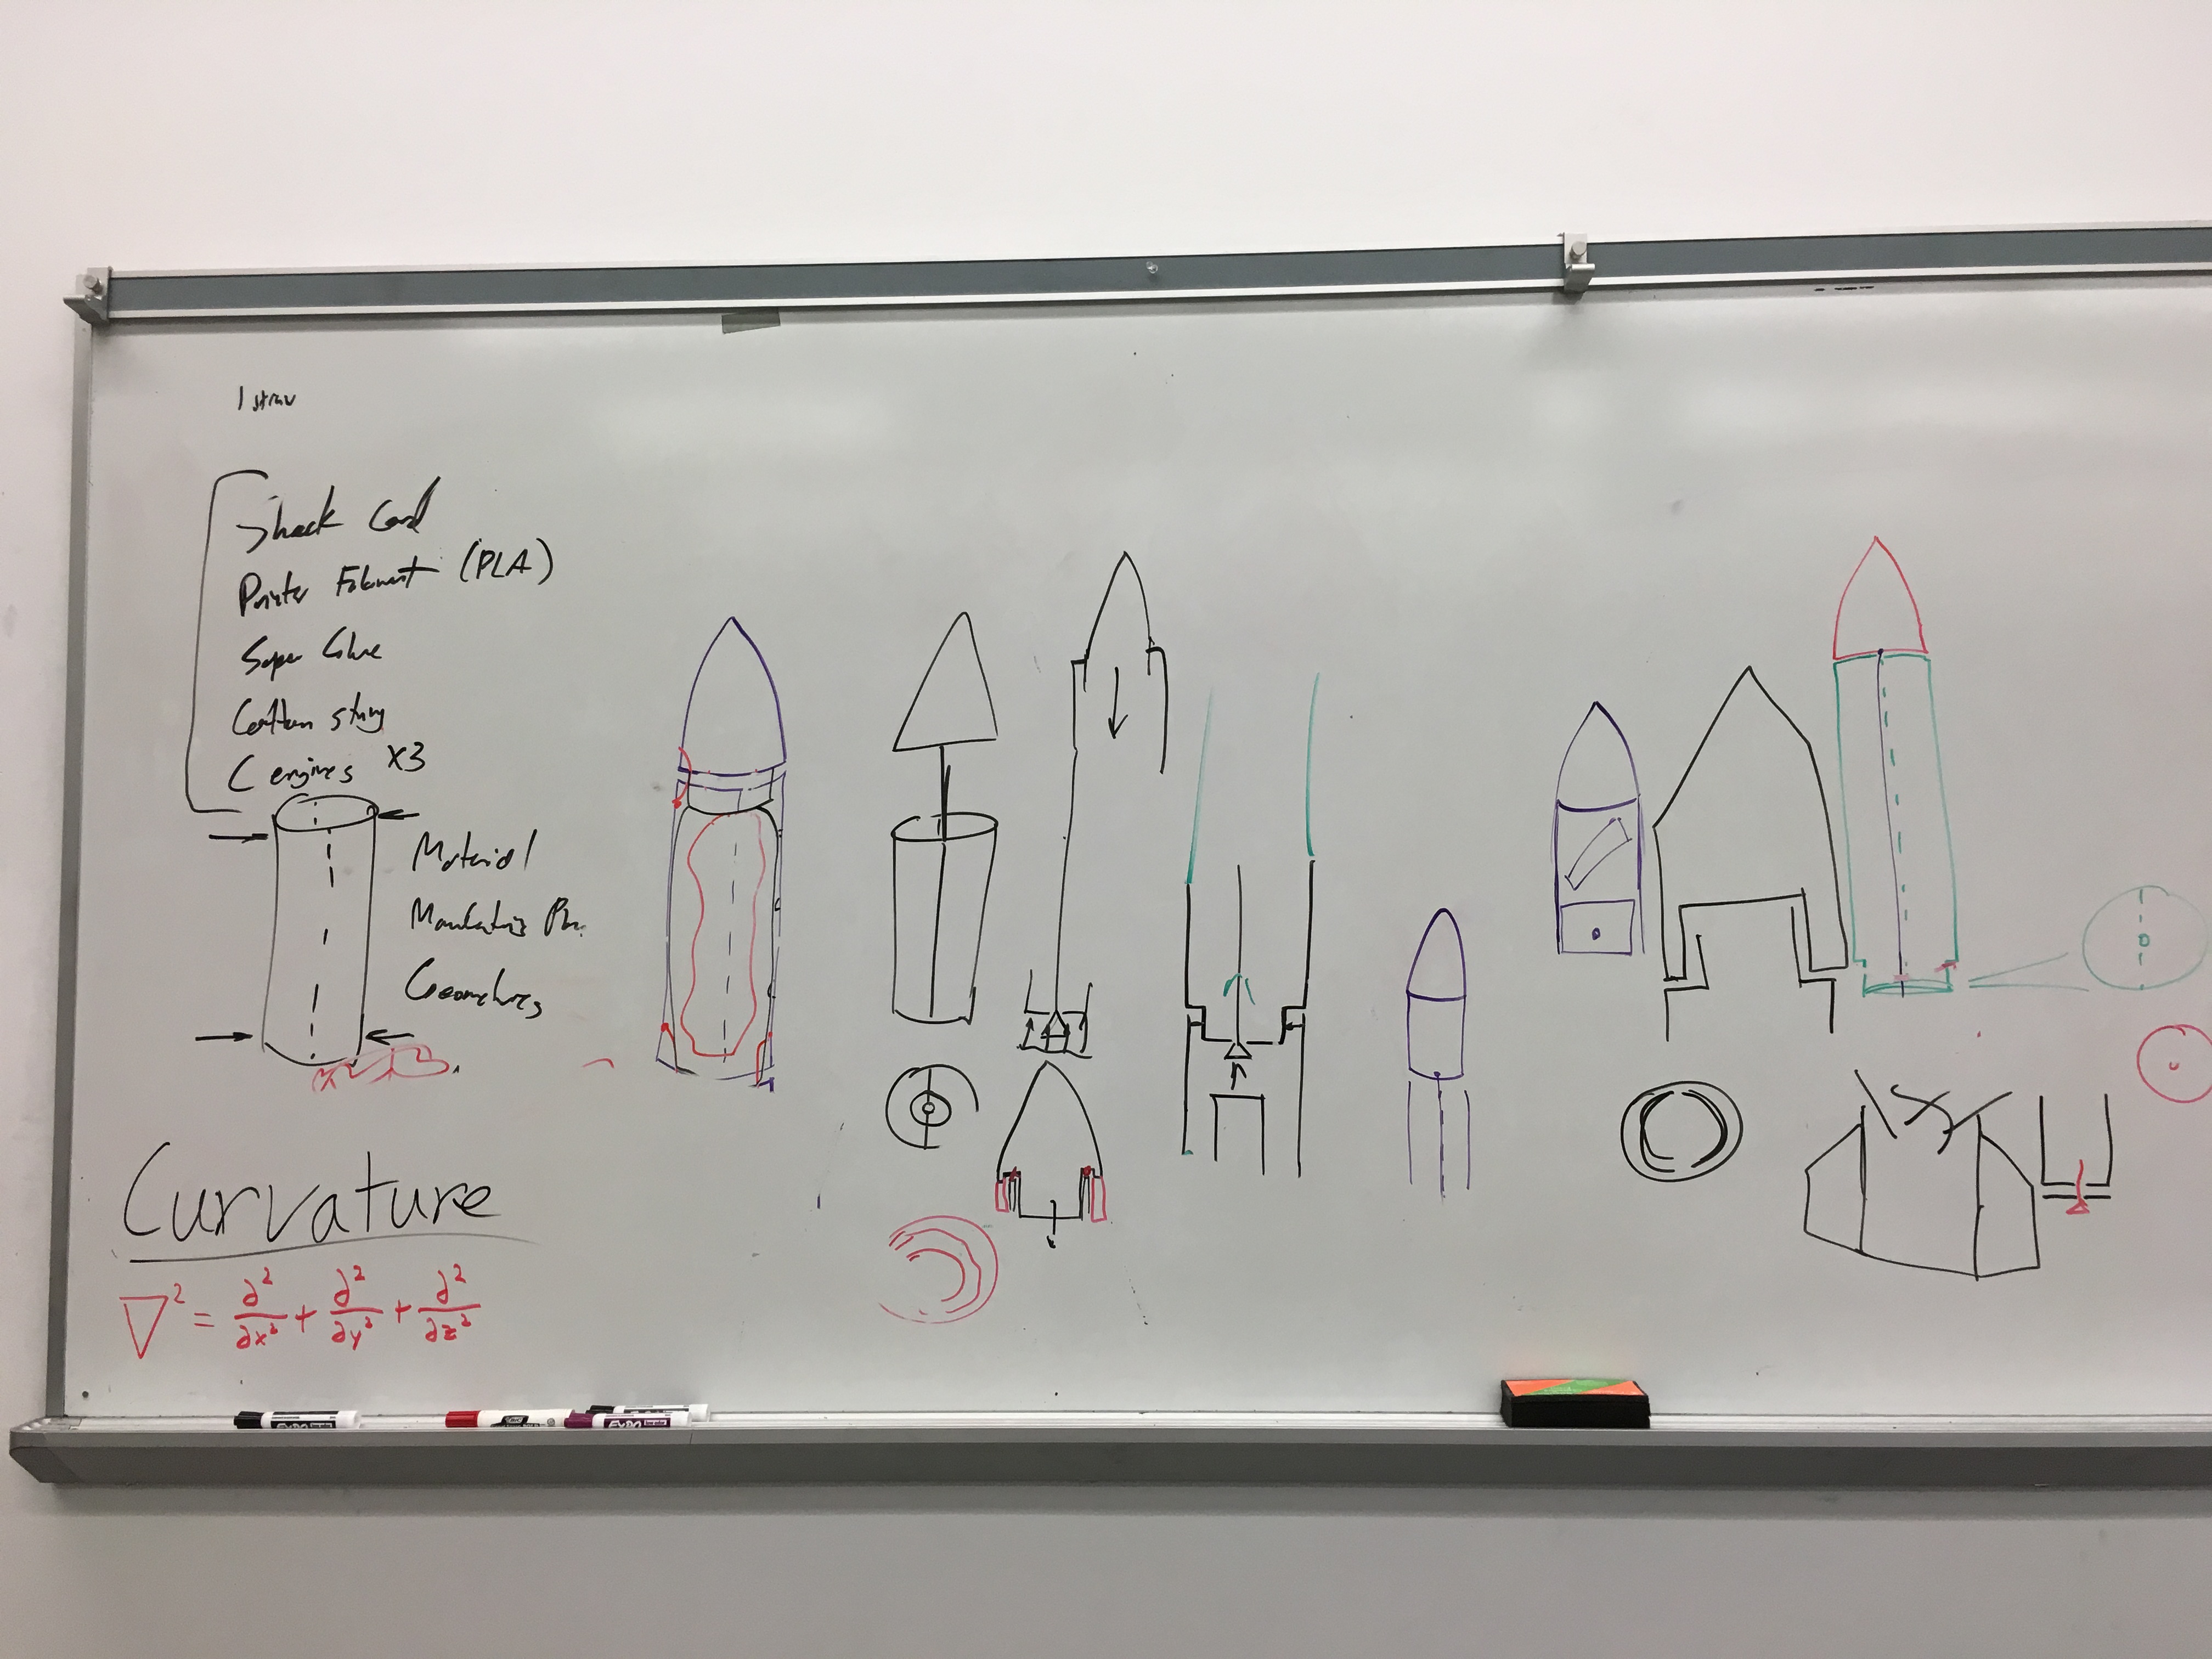 1 straw
Shock Cord
Printer Filament (PLA)
Super Glue
Cotton string
C engines x3
Material
Geometries
Curvature
∇² = ∂²/∂x² + ∂²/∂y² + ∂²/∂z²
EXPO